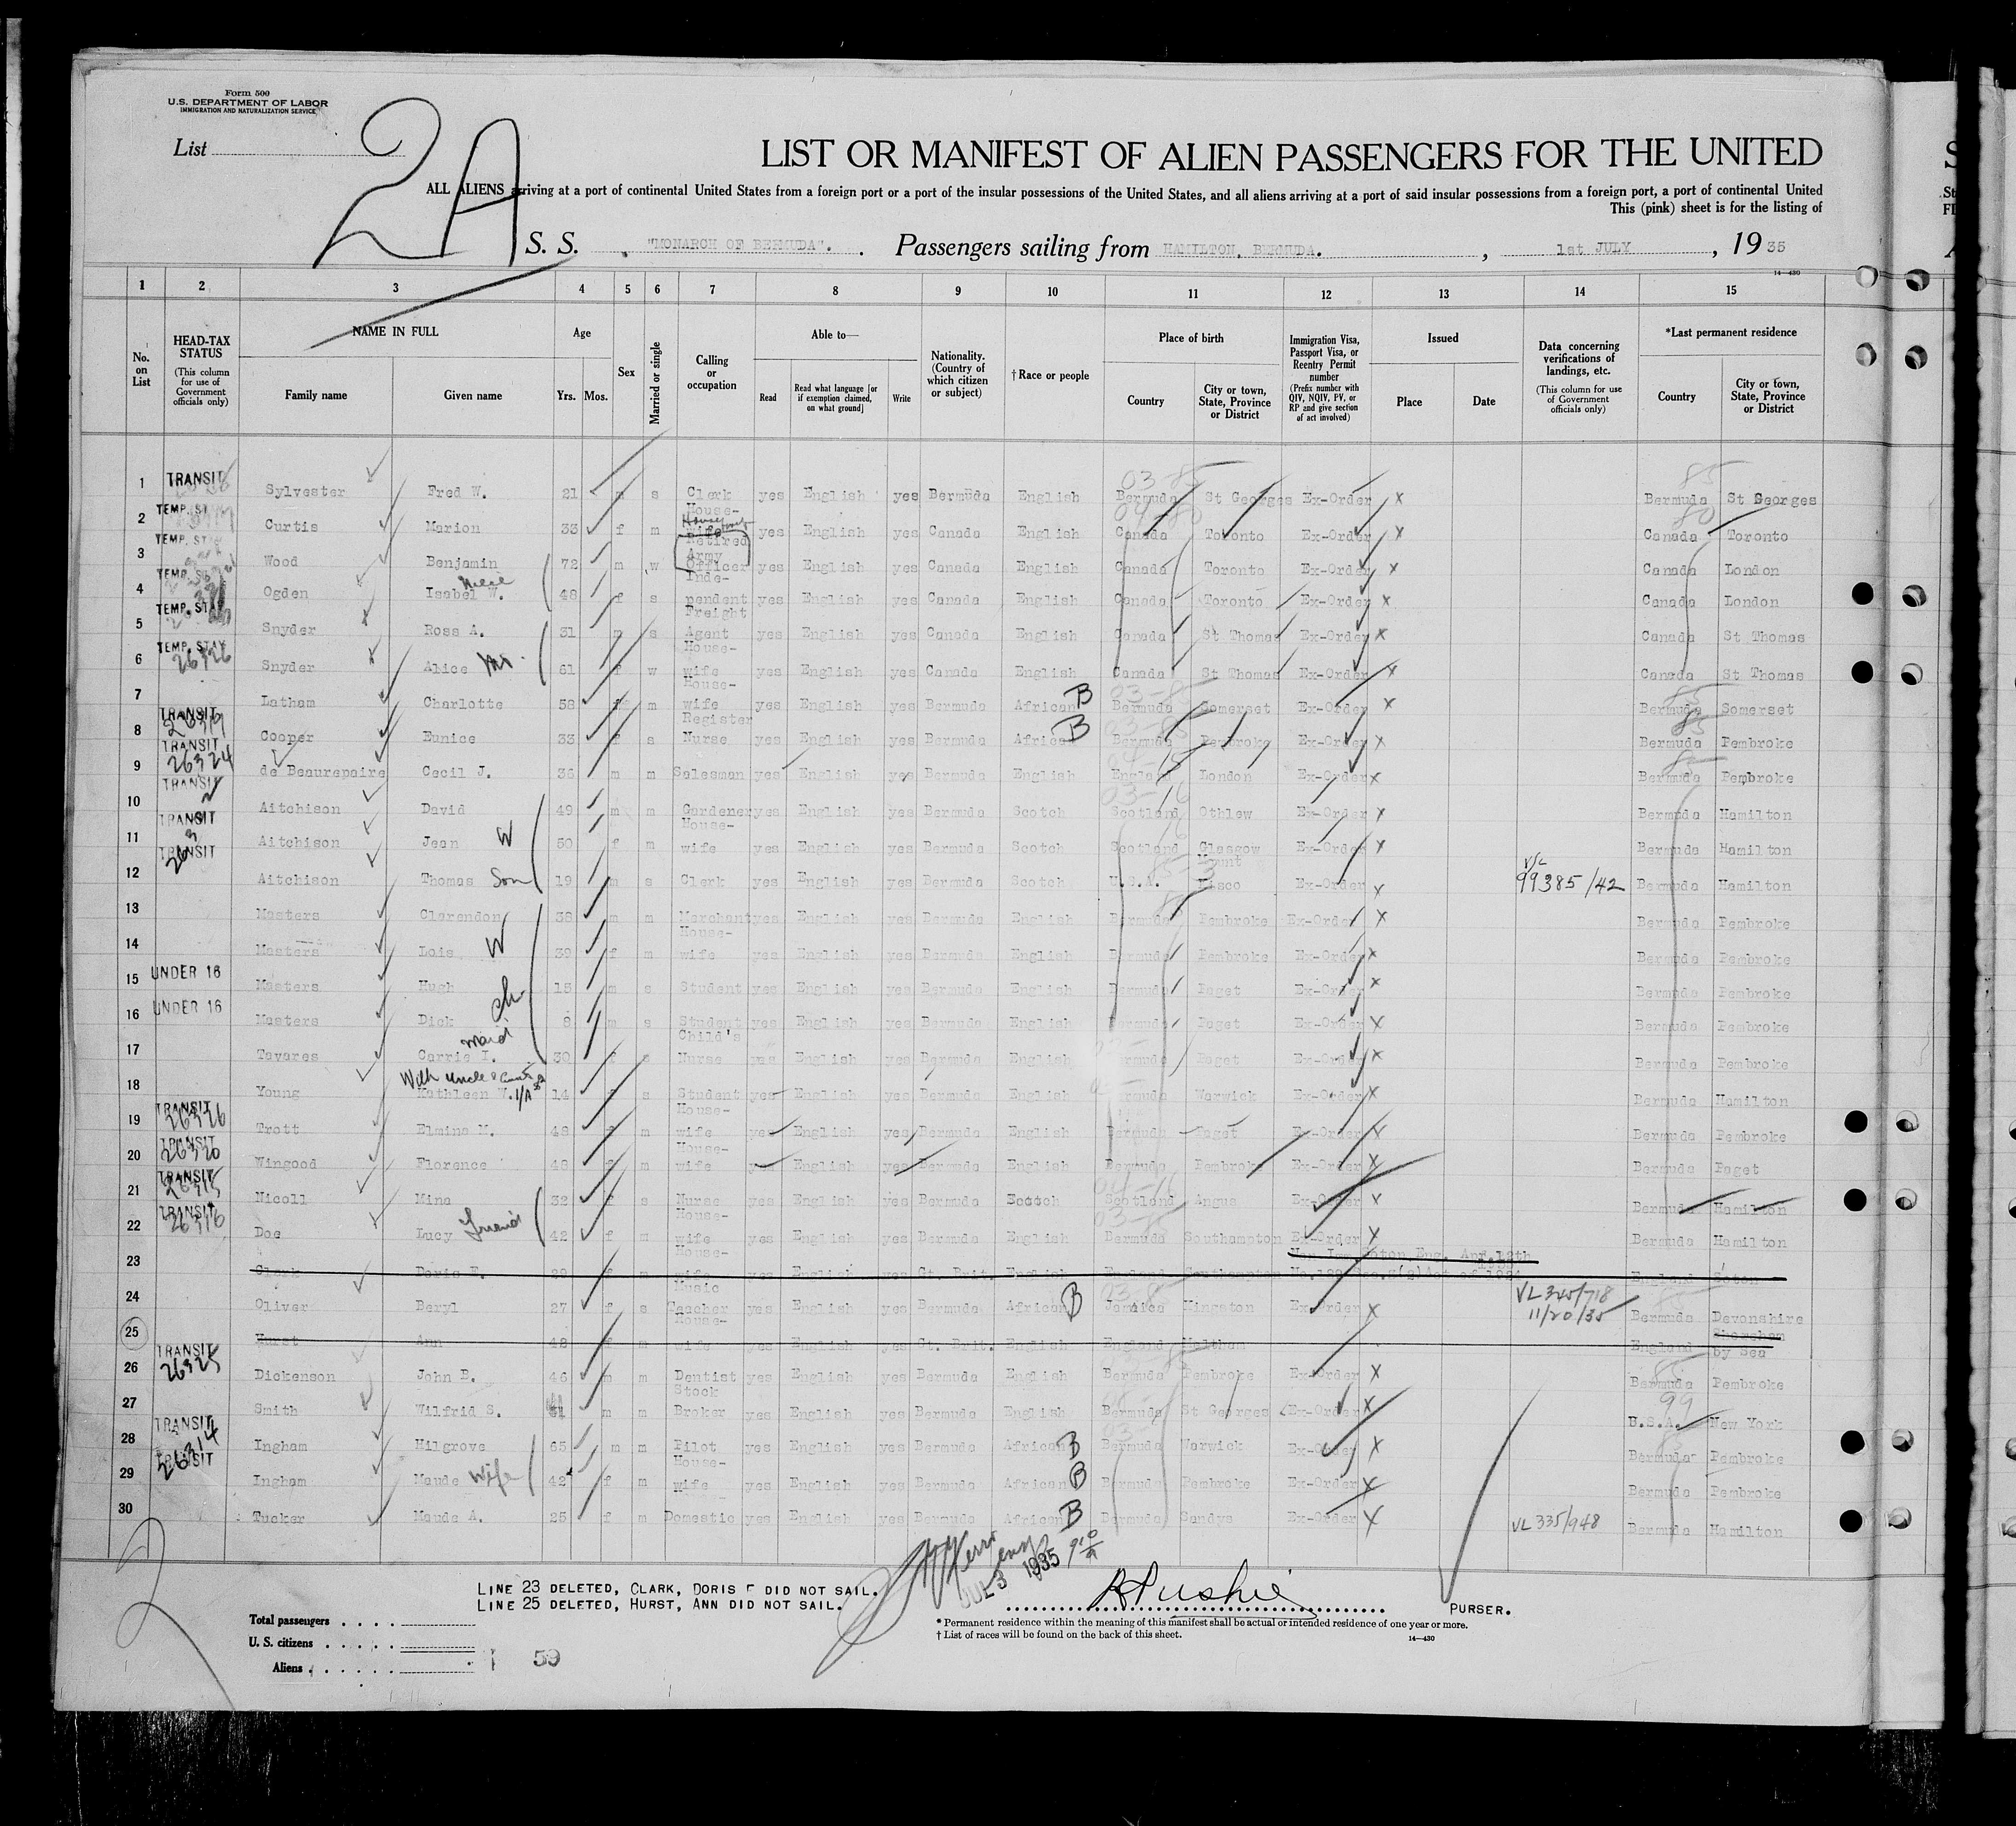 Form 500
U.S. DEPARTMENT OF LABOR
IMMIGRATION AND NATURALIZATION SERVICE
List
2A
LIST OR MANIFEST OF ALIEN PASSENGERS FOR THE UNITED
ALL ALIENS arriving at a port of continental United States from a foreign port or a port of the insular possessions of the United States, and all aliens arriving at a port of said insular possessions from a foreign port, a port of continental United
This (pink) sheet is for the listing of
S. S. "MONARCH OF BERMUDA". Passengers sailing from HAMILTON, BERMUDA. , 1st JULY , 19 35
14-430
1 2 3 4 5 6 7 8 9 10 11 12 13 14 15
No. on List
HEAD-TAX STATUS (This column for use of Government officials only)
NAME IN FULL Family name Given name
Age Yrs. Mos.
Sex
Married or single
Calling or occupation
Able to— Read Read what language [or if exemption claimed, on what ground] Write
Nationality. (Country of which citizen or subject)
† Race or people
Place of birth Country City or town, State, Province or District
Immigration Visa, Passport Visa, or Reentry Permit number (Prefix number with QIV, NQIV, PV, or RP and give section of act involved)
Issued Place Date
Data concerning verifications of landings, etc. (This column for use of Government officials only)
*Last permanent residence Country City or town, State, Province or District
1 TRANSIT Sylvester Fred W. 21 m s Clerk yes English yes Bermuda English Bermuda St Georges Ex-Order x Bermuda St Georges
2 TEMP. ST Curtis Marion 33 f m House-wife yes English yes Canada English Canada Toronto Ex-Order x Canada Toronto
3 TEMP. ST Wood Benjamin 72 m w Retired Army Officer yes English yes Canada English Canada Toronto Ex-Order x Canada London
4 TEMP. ST Ogden Isabel W. Niece 48 f s Inde-pendent yes English yes Canada English Canada Toronto Ex-Order x Canada London
5 TEMP. STAY Snyder Ross A. 31 m s Freight Agent yes English yes Canada English Canada St Thomas Ex-Order x Canada St Thomas
6 TEMP. STAY 26326 Snyder Alice 61 f w House-wife yes English yes Canada English Canada St Thomas Ex-Order x Canada St Thomas
7 Latham Charlotte 58 f m House-wife yes English yes Bermuda African B Bermuda Somerset Ex-Order x Bermuda Somerset
8 TRANSIT 26319 Cooper Eunice 33 f s Register Nurse yes English yes Bermuda African B Bermuda Pembroke Ex-Order x Bermuda Pembroke
9 TRANSIT 26324 de Beaurepaire Cecil J. 36 m m Salesman yes English yes Bermuda English England London Ex-Order x Bermuda Pembroke
10 TRANSIT Aitchison David 49 m m Gardener yes English yes Bermuda Scotch Scotland Othlew Ex-Order x Bermuda Hamilton
11 TRANSIT Aitchison Jean W 50 f m House-wife yes English yes Bermuda Scotch Scotland Glasgow Ex-Order x Bermuda Hamilton
12 TRANSIT Aitchison Thomas Son 19 m s Clerk yes English yes Bermuda Scotch U.S.A. Mount Kisco Ex-Order x 99385/42 Bermuda Hamilton
13 Masters Clarendon 38 m m Merchant yes English yes Bermuda English Bermuda Pembroke Ex-Order x Bermuda Pembroke
14 Masters Lois W 39 f m House-wife yes English yes Bermuda English Bermuda Pembroke Ex-Order x Bermuda Pembroke
15 UNDER 16 Masters Hugh 15 m s Student yes English yes Bermuda English Bermuda Paget Ex-Order x Bermuda Pembroke
16 UNDER 16 Masters Dick ch 8 m s Student yes English yes Bermuda English Bermuda Paget Ex-Order x Bermuda Pembroke
17 Tavares Carrie I. maid 30 f s Child's Nurse yes English yes Bermuda English Bermuda Paget Ex-Order x Bermuda Pembroke
18 Young With uncle & aunt Kathleen V. 14 f s Student yes English yes Bermuda English Bermuda Warwick Ex-Order x Bermuda Hamilton
19 TRANSIT 26326 Trott Elmina M. 48 f m House-wife yes English yes Bermuda English Bermuda Paget Ex-Order x Bermuda Pembroke
20 TRANSIT 26320 Wingood Florence 48 f m House-wife yes English yes Bermuda English Bermuda Pembroke Ex-Order x Bermuda Paget
21 TRANSIT 26315 Nicoll Mina 32 f s Nurse yes English yes Bermuda Scotch Scotland Angus Ex-Order x Bermuda Hamilton
22 TRANSIT 26316 Doe Lucy Friend 42 f m House-wife yes English yes Bermuda English Bermuda Southampton Ex-Order x Bermuda Hamilton
23 Clark Doris E. 29 f m House-wife yes English yes Gt. Brit. English England Southampton England Soton
24 Oliver Beryl 27 f s Music Teacher yes English yes Bermuda African B Jamaica Kingston Ex-Order x VL 345/718 11/20/35 Bermuda Devonshire
25 Hurst Ann 48 f m House-wife yes English yes Gt. Brit. English England England by Sea
26 TRANSIT 26325 Dickenson John B. 46 m m Dentist yes English yes Bermuda English Bermuda Pembroke Ex-Order x Bermuda Pembroke
27 Smith Wilfrid S. m m Stock Broker yes English yes Bermuda English Bermuda St Georges Ex-Order x 99 U.S.A. New York
28 TRANSIT 26314 Ingham Hilgrove 65 m m Pilot yes English yes Bermuda African B Bermuda Warwick Ex-Order x Bermuda Pembroke
29 TRANSIT Ingham Maude Wife 42 f m House-wife yes English yes Bermuda African B Bermuda Pembroke Ex-Order x Bermuda Pembroke
30 Tucker Maude A. 25 f m Domestic yes English yes Bermuda African B Bermuda Sandys Ex-Order x VL 335/948 Bermuda Hamilton
LINE 23 DELETED, CLARK, DORIS E DID NOT SAIL.
LINE 25 DELETED, HURST, ANN DID NOT SAIL.
JUL 3 1935
PURSER.
Total passengers
U. S. citizens
Aliens
59
* Permanent residence within the meaning of this manifest shall be actual or intended residence of one year or more.
† List of races will be found on the back of this sheet.
14-430